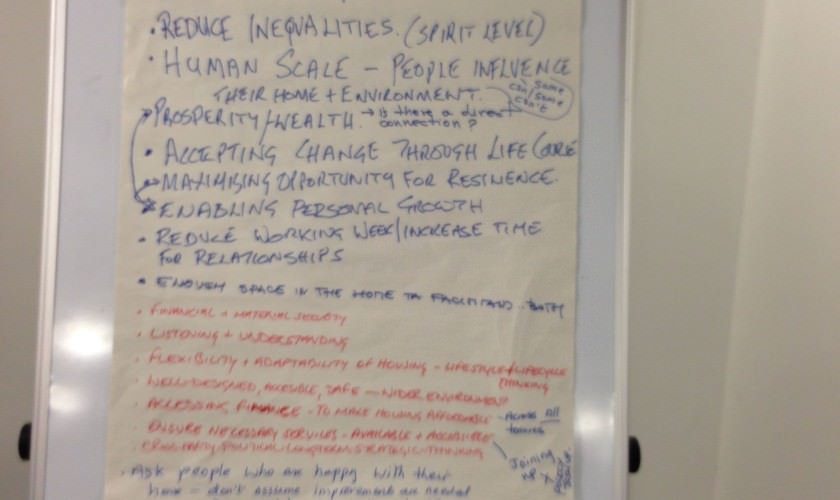 • REDUCE INEQUALITIES. (SPIRIT LEVEL)
• HUMAN SCALE – PEOPLE INFLUENCE
THEIR HOME + ENVIRONMENT.
Some can / Some can't
PROSPERITY/WEALTH. → is there a direct connection?
• ACCEPTING CHANGE THROUGH LIFE COURSE
MAXIMISING OPPORTUNITY FOR RESILIENCE.
ENABLING PERSONAL GROWTH
• REDUCE WORKING WEEK/INCREASE TIME
FOR RELATIONSHIPS
• ENOUGH SPACE IN THE HOME TO
• FINANCIAL + MATERIAL SECURITY
• LISTENING + UNDERSTANDING
• FLEXIBILITY + ADAPTABILITY OF HOUSING – LIFESTYLE/LIFECYCLE
THINKING
• WELL-DESIGNED, ACCESIBLE, SAFE – WIDER ENVIRONMENT
• ACCESSING FINANCE – TO MAKE HOUSING AFFORDABLE – Across All
tenures
• ENSURE NECESSARY SERVICES – AVAILABLE + ACCESSIBLE
• CROSS-PARTY POLITICAL LONGTERM STRATEGIC THINKING
Joining
up
• Ask people who are happy with their
home – don't assume improvements are needed